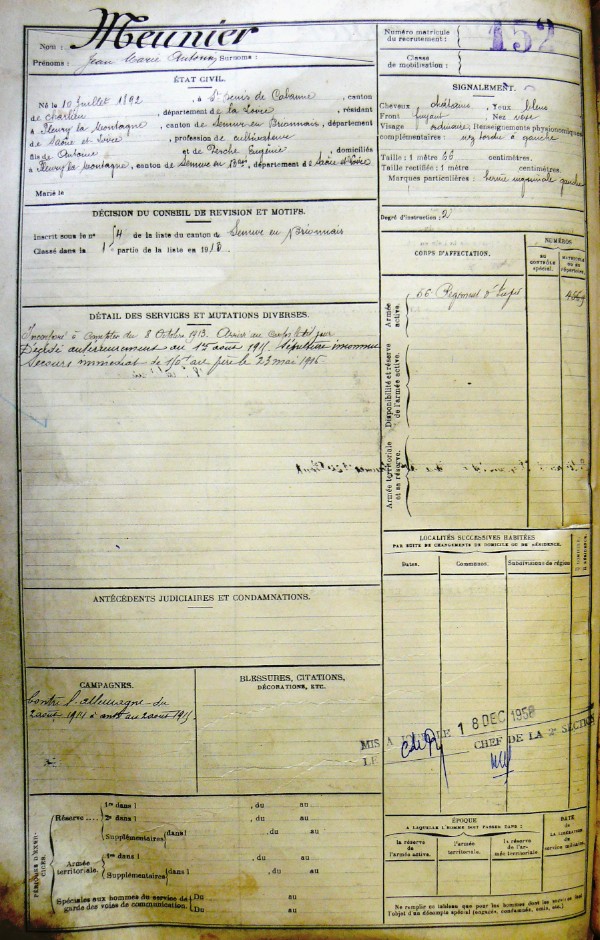 Nom : Meunier
Prénoms : Jean Marie Antoine Surnoms :
ÉTAT CIVIL.
Né le 10 Juillet 1892, à St Denis de Cabanne, canton
de Charlieu, département de la Loire, résidant
à Fleury la Montagne, canton de Semur en Brionnais, département
de Saône et Loire, profession de cultivateur
fils de Antoine et de Perche Eugénie, domiciliés
à Fleury la Montagne, canton de Semur en Bnais, département de Saône et Loire
Marié le
DÉCISION DU CONSEIL DE REVISION ET MOTIFS.
Inscrit sous le no 54 de la liste du canton de Semur en Brionnais
Classé dans la 1e partie de la liste en 1913
DÉTAIL DES SERVICES ET MUTATIONS DIVERSES.
Incorporé à compter du 8 Octobre 1913. Arrivé au corps le dit jour
Décédé antérieurement au 1er août 1915. Sépulture inconnue
Secours immédiat de 150f au père le 23 mai 1916
ANTÉCÉDENTS JUDICIAIRES ET CONDAMNATIONS.
CAMPAGNES.
Contre l'Allemagne du
2 août 1914 à ant au 2 août 1915
BLESSURES, CITATIONS,
DÉCORATIONS, ETC.
PÉRIODES D'EXERCICES.
Réserve
1re dans l , du au
2e dans l , du au
Supplémentaires dans l , du au
Armée territoriale.
1re dans l , du au
Supplémentaires dans l , du au
Spéciales aux hommes du service de garde des voies de communication.
Du au
Du au
Numéro matricule
du recrutement :
152
Classe
de mobilisation :
SIGNALEMENT.
Cheveux châtains Yeux bleus
Front fuyant Nez vexe
Visage ordinaire Renseignements physionomiques
complémentaires : nez tordu à gauche
Taille : 1 mètre 66 centimètres.
Taille rectifiée : 1 mètre centimètres.
Marques particulières : hernie inguinale gauche
Degré d'instruction : 2
CORPS D'AFFECTATION.
NUMÉROS
AU CONTRÔLE spécial.
MATRICULE OU AU répertoire.
Armée active.
56e Régiment d'Infie
Disponibilité et réserve de l'armée active.
Armée territoriale et sa réserve.
LOCALITÉS SUCCESSIVES HABITÉES
PAR SUITE DE CHANGEMENTS DE DOMICILE OU DE RÉSIDENCE.
Dates.
Communes.
Subdivisions de région
MIS A JOUR LE 18 DEC 1958
LE CHEF DE LA 2e SECTION
ÉPOQUE
A LAQUELLE L'HOMME DOIT PASSER DANS :
la réserve de l'armée active.
l'armée territoriale.
la réserve de l'armée territoriale
DATE de LA LIBÉRATION du service militaire.
Ne remplir ce tableau que pour les hommes dont les services font
l'objet d'un décompte spécial (engagés, condamnés, omis, etc.)